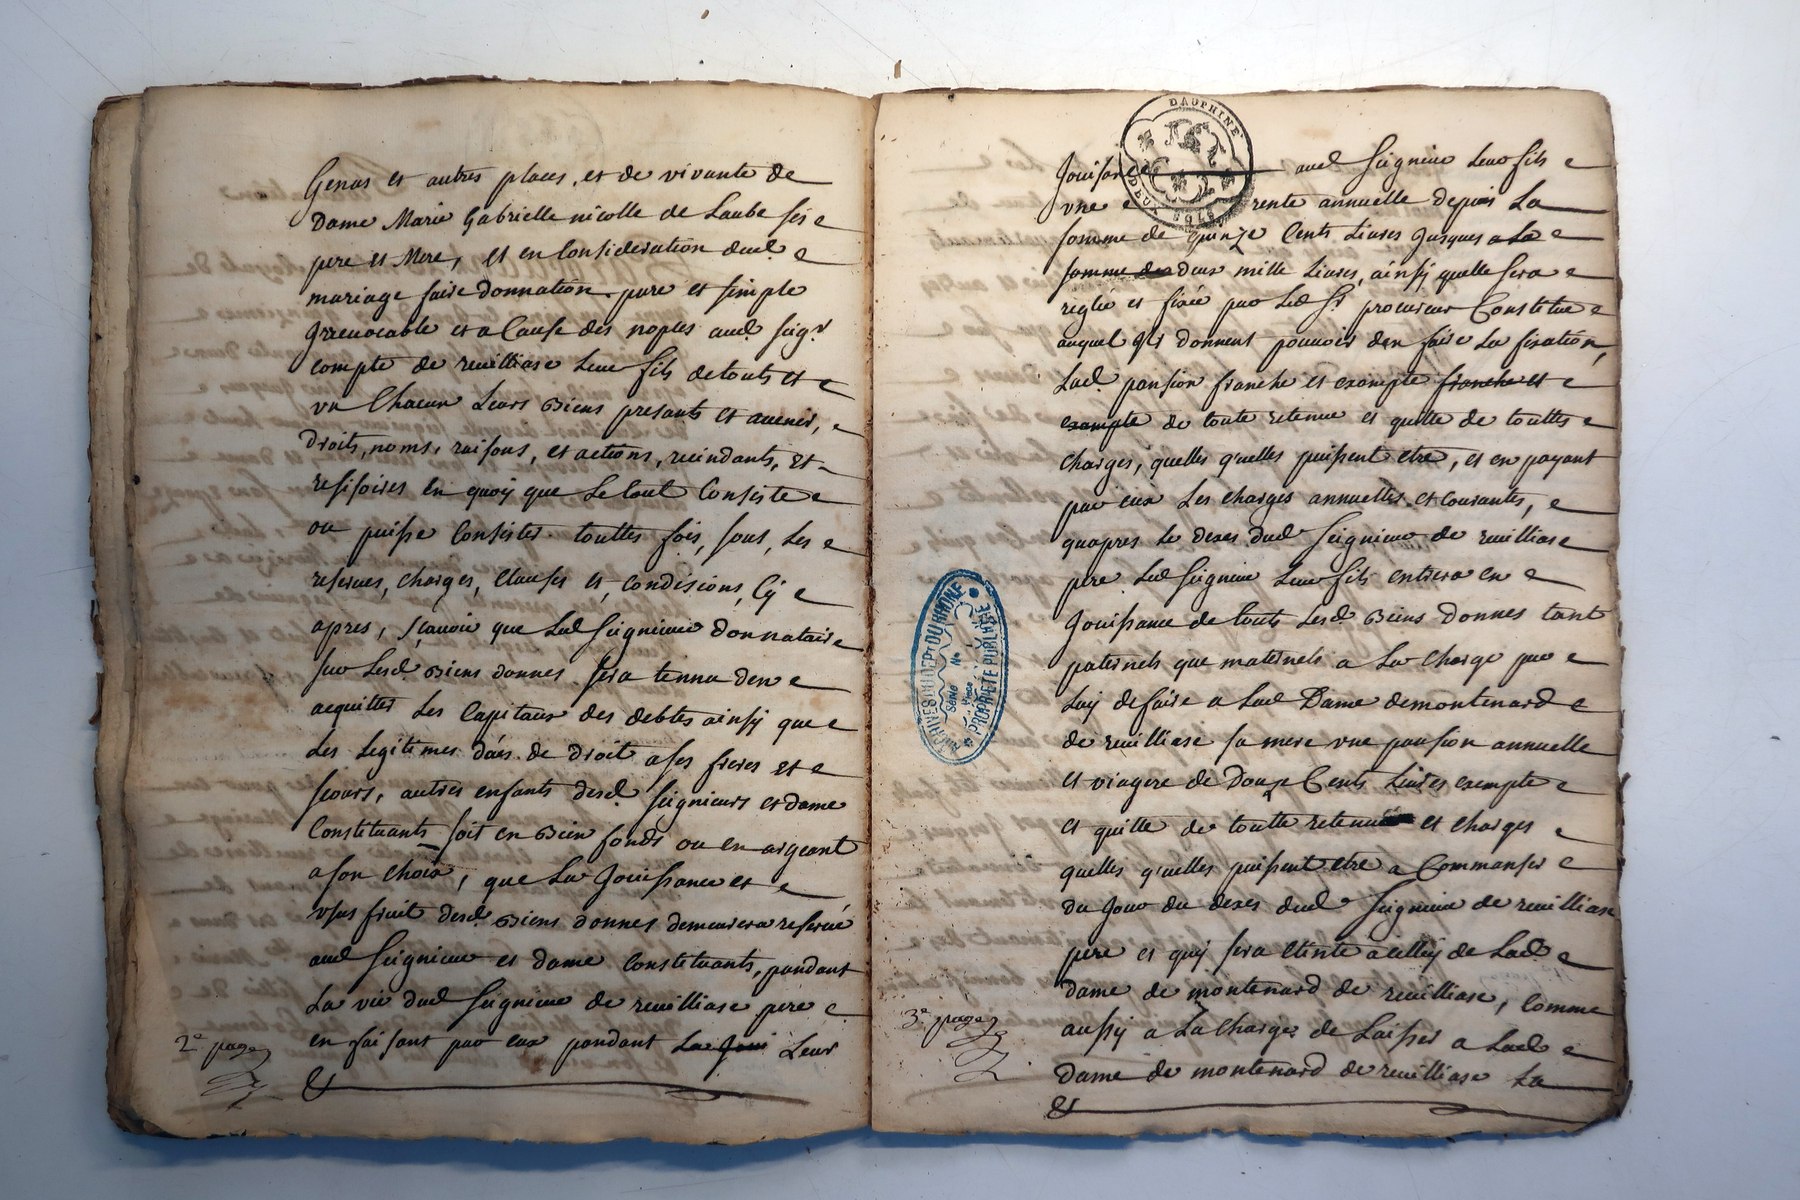 Genas et autres places, et de vivante de
Dame Marie Gabrielle nicolle de Laube ses
pere et Mere, et en Consideration dud.
mariage faire donnation pure et simple
Irrevocable et a Cause des noples aud. seigr
compte de reuilliase Leur fils de touts et
vn Chacun Leurs Biens presants et avenir,
Droits, noms, raisons, et actions, reindants, Et
resisoires en quoÿ que Le tout Consiste
ou puisse Consister touttes fois, sous, Les
reserues, charges, Clauses et, condisions, Cÿ
apres, sçavoir que Led Seigneur donnataire
sur Lesd Biens donnes sera tennu den
acquitter Les Capitaux des debtes ainsÿ que
Les Legitimes dües de droit a ses freres Et
seours, autres enfants desd. seigneurs et dame
Constituants soit en Bien fonds ou en argeant
a son choix, que La Jouissance et
vsus fruit desd. Biens donnes demeurera reserué
aud Seigneur et dame Constituants, pandant
La vie dud Seigneur de reuilliase pere
en faisant par eux pandant La Joui Leur
2e page
DAUPHINE
DEUX SOLS
Jouisance aud Seigneur Leur fils
vne rente annuelle depuis La
somme de quinze Cents Liures Jusques a La
somme de deux mille Liures, ainsÿ quelle sera
reglée et fixée par Led Sr procureur Constitue
auquel Ils donnent pouuoir den faire La fixation,
Lad. pansion franche et exempte franche et
exampte de toute retenue et quitte de touttes
Charges, quelles q'uelles puissent etre, et en payant
par eux Les charges annuelles et Courantes,
quapres Le deces dud Seigneur de reuilliase
pere Led Seigneur Leur fils entrera en
Jouissance de touts Lesd Biens donnes tant
paternels que maternels a La Charge par
Luy de faire a Lad Dame de montenard
de reuilliase sa mere vne pansion annuelle
et viagere de Douze Cents Liures exempte
et quitte de toutte retenue et charges
quelles q'uelles puissent etre a Commanser
du Jour du deces dud Seigneur de reuilliase
pere et quÿ sera eteinte a cellüy de Lad
dame de montenard de reuilliase, Comme
aussÿ a La Charge de Laisser a Lad
Dame de montenard de reuilliase La
3e page
ARCHIVES DU DEPT DU RHONE
PROPRIÉTÉ PUBLIQUE